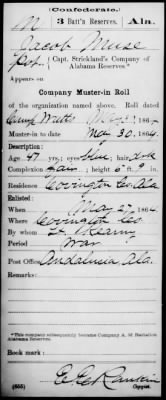 (Confederate.)
M 3 Batt'n Reserves. Ala.
Jacob Muse
Pvt., Capt. Strickland's Company of
Alabama Reserves.*
Appears on
Company Muster-in Roll
of the organization named above. Roll dated
Camp Watts, 186
Muster-in to date Nov 30, 1864.
Description:
Age 47 yrs; eyes blue, hair dark
Complexion fair; height 5 ft. 9 in.
Residence Covington Co. Ala.
Enlisted:
When May 27, 1864.
Where Covington Co.
By whom Lt. Kearny
Period War
Post Office Andalusia Ala.
Remarks:
*This company subsequently became Company A, 3d Battalion
Alabama Reserves.
Book mark:
(655) E. E. Rankin
Copyist.